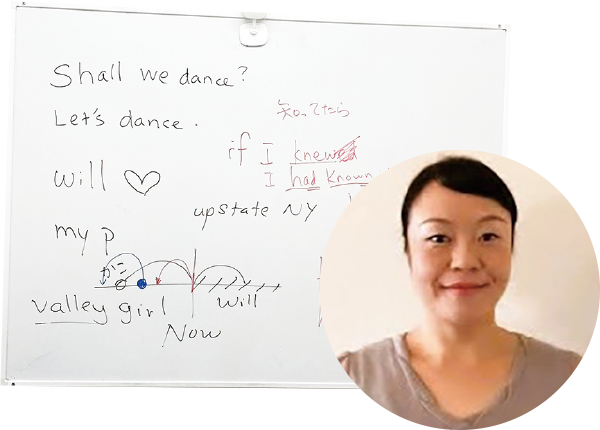 Shall we dance?
Let's dance.
知ってたら
if I knew
I had known
will ♡
upstate NY
my p
will
valley girl
Now